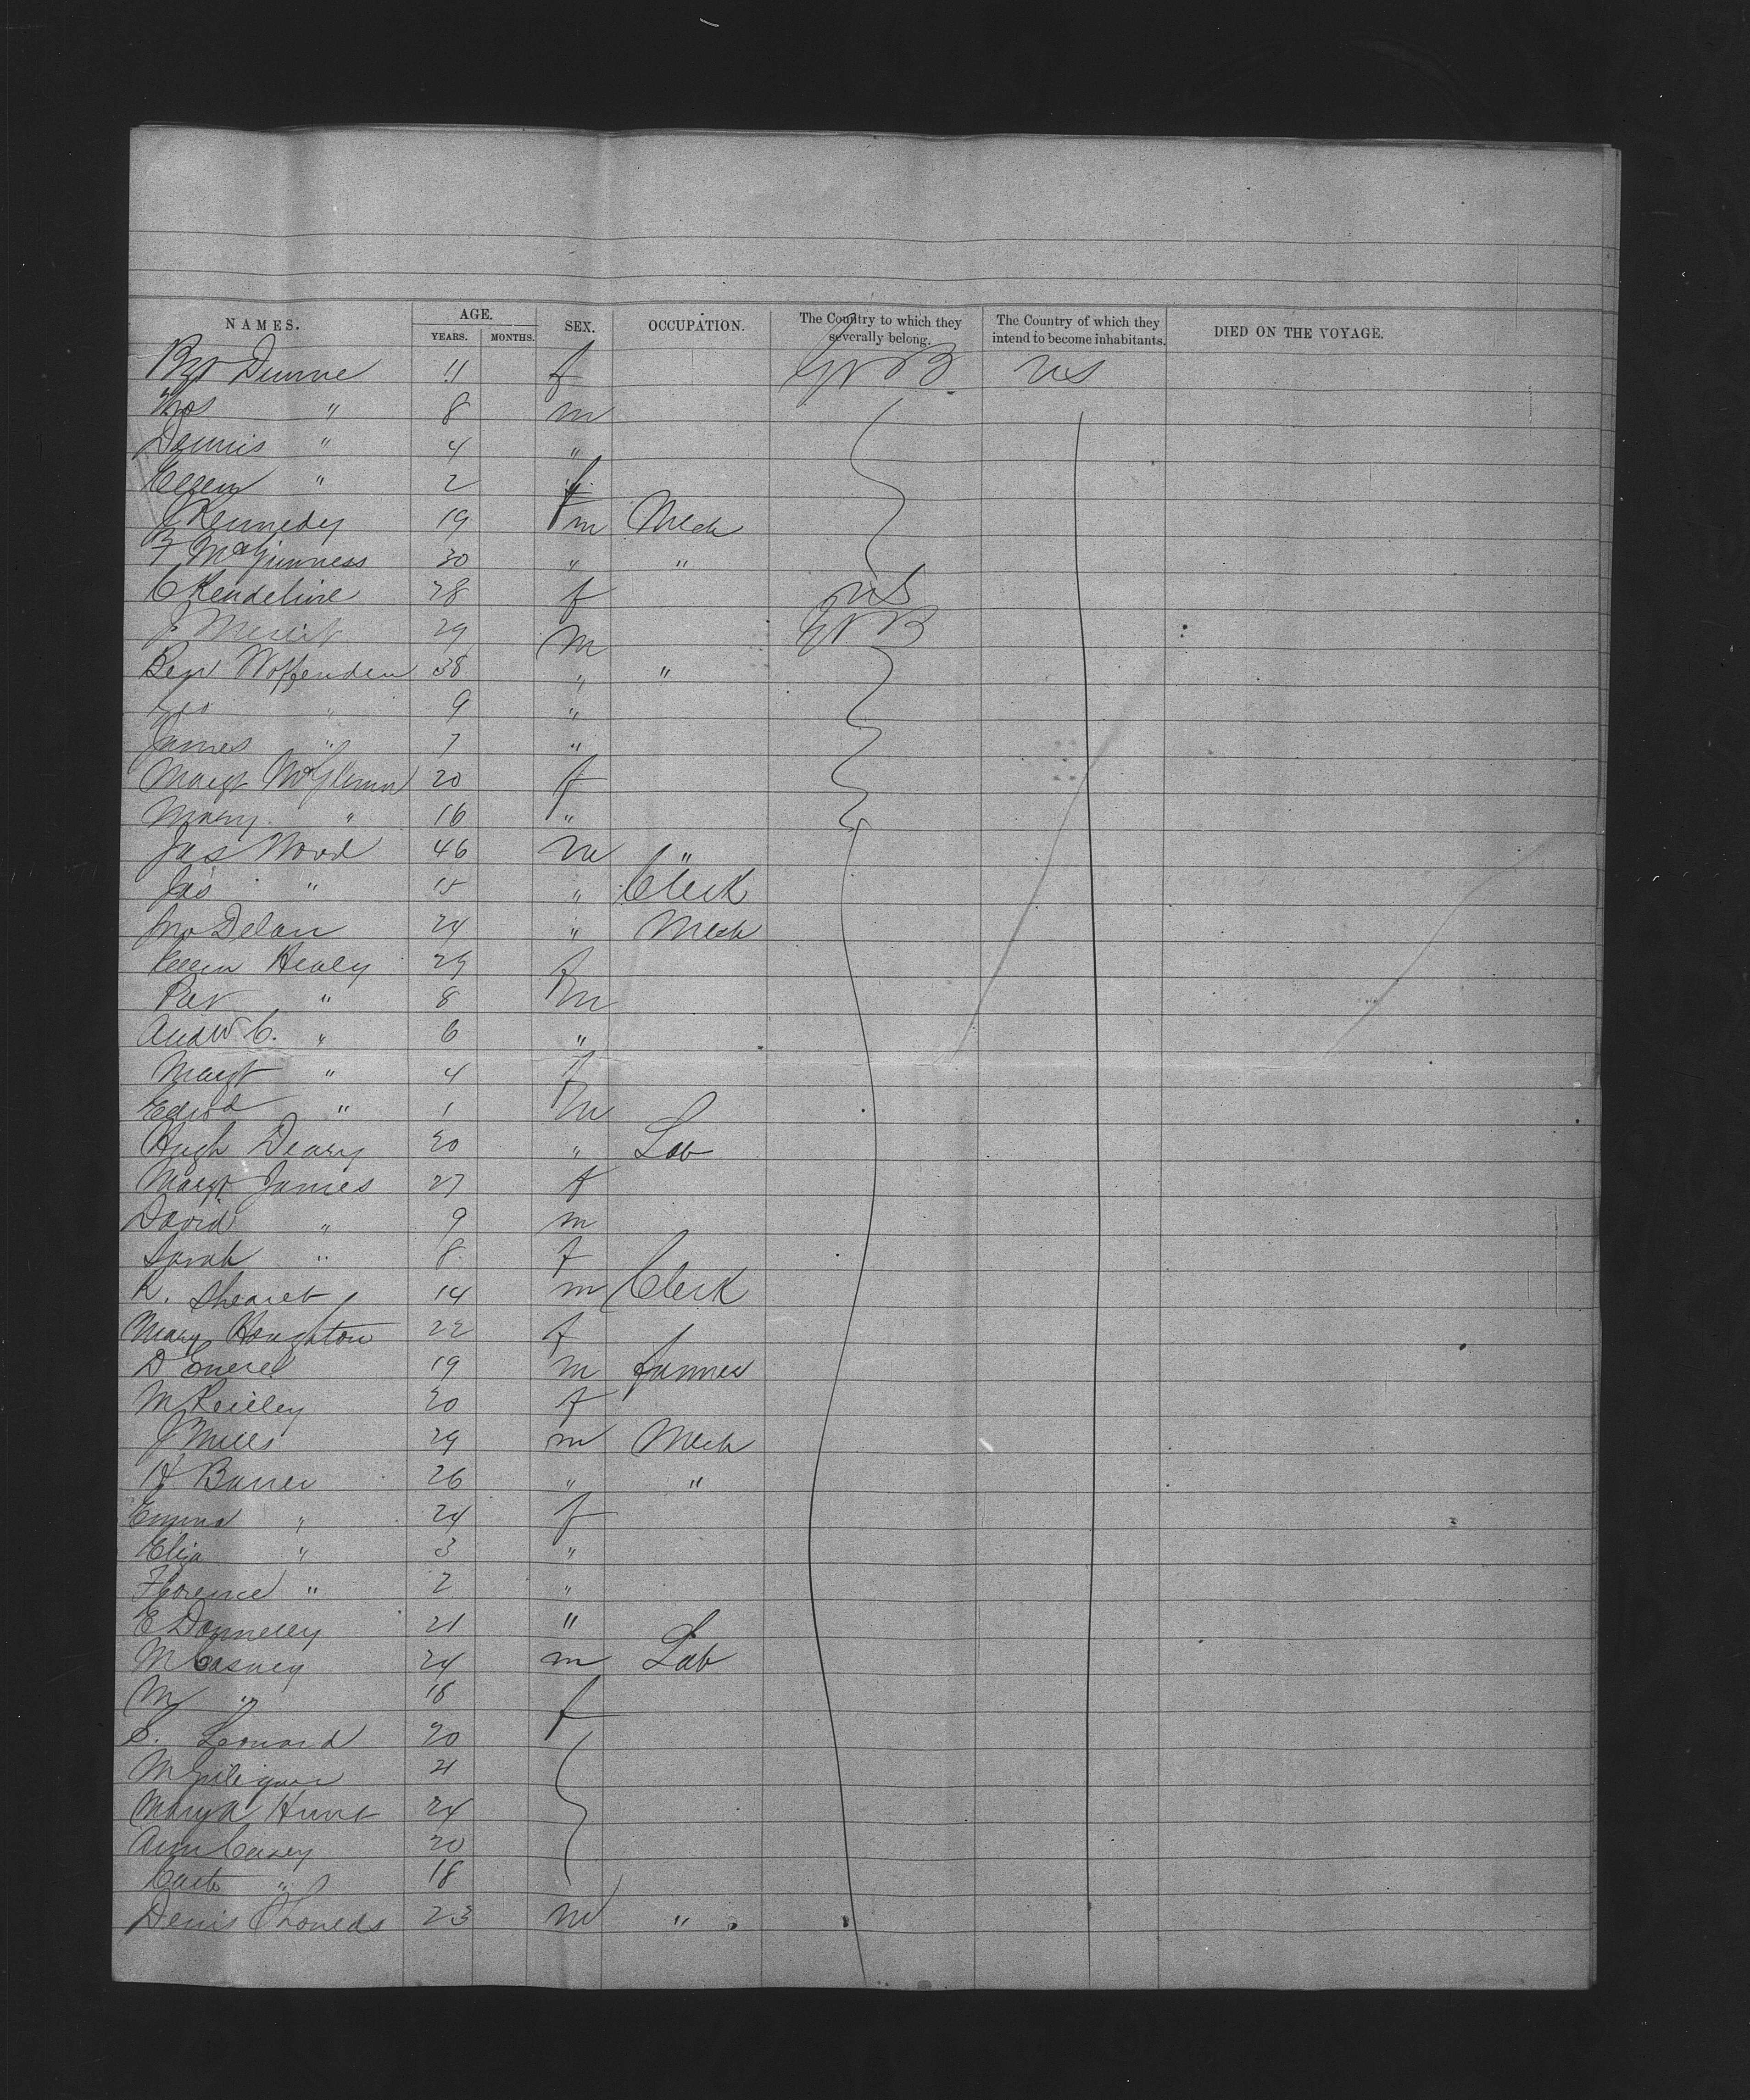 NAMES. AGE. YEARS. MONTHS. SEX. OCCUPATION. The Country to which they severally belong. The Country of which they intend to become inhabitants. DIED ON THE VOYAGE.
Bgt Dunne 11 f Gt B US
Thos " 8 m
Dennis " 4 "
Ellen " 2 f
J Kennedy 19 m Mech
F McGuinness 30 " "
C Kendeline 28 f US
J 29 m Gt B
Benj Woffenden 38 " "
Geo " 9 "
James " 7 "
Margt McGlenn 20 f
Mary " 16 "
Jas Wood 46 m "
Jas " 15 " Clerk
Jno Delan 24 " Mech
Ellen Healy 29 f
Pat " 8 m
Andw C. " 6 "
Margt " 4 f
Edwd " 1 m
Hugh Deary 20 " Lab
Margt James 27 f
David " 9 m
Sarah " 8 f
R. Shearet 14 m Clerk
Mary Houghton 22 f
D 19 m farmer
M Reilley 20 f
J Mills 29 m Mech
H Barrer 26 " "
Emma " 24 f
Eliza " 3 "
Florence " 2 "
E Donnelly 21 "
M Casney 24 m Lab
M " 18 f
S. Leonard 20
M 21
Mary A Hunt 24
Ann Casey 20
Cath " 18
Denis 23 m "